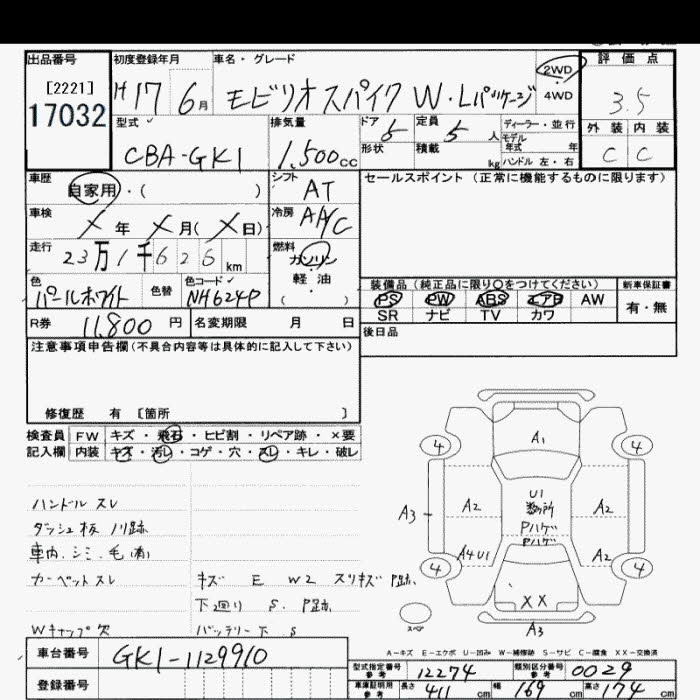 出品番号 初度登録年月 車名・グレード 評価点
[2221]
17032
H17 6月 モビリオスパイク W・Lパッケージ 2WD 4WD 3.5
型式 排気量 ドア 定員 ディーラー・並行 外装 内装
CBA-GK1 1,500cc 5 5人 モデル年式 年 C C
形状 積載 kg ハンドル 左・右
車歴 シフト セールスポイント (正常に機能するものに限ります)
自家用・( ) AT
車検 冷房
X年 X月(X日) A/C
走行 燃料
23万1千626km ガソリン・軽油
( )
色 色替 色コード 装備品 (純正品に限り〇をつけてください) 新車保証書
パールホワイト NH624P PS PW ABS エアB AW 有・無
SR ナビ TV カワ
R券 11,800円 名変期限 月 日 後日品
注意事項申告欄(不具合内容等は具体的に記入して下さい)
修復歴 有 〔箇所 〕
検査員 FW キズ・飛石・ヒビ割・リペア跡・×要
記入欄 内装 キズ・汚レ・コゲ・穴・スレ・キレ・破レ
ハンドル スレ
ダッシュ板 ノリ跡
車内.シミ.毛(有)
カーペットスレ キズ E W2 スリキズ P跡.
下廻り S. P跡.
Wキャップ欠 バッテリー下 S
4 A1 4
A3 A2 U1 A2
数ヶ所
Pハゲ
Pハゲ
A4 U1 A2
4 4
XX
スペア A3
A-キズ E-エクボ U-凹み W-補修跡 S-サビ C-腐食 XX-交換済
車台番号 GK1-1129910
型式指定番号 参考 12274 類別区分番号 参考 0029
登録番号 車庫証明用 参考 長さ 411cm 幅 169cm 高さ 174cm